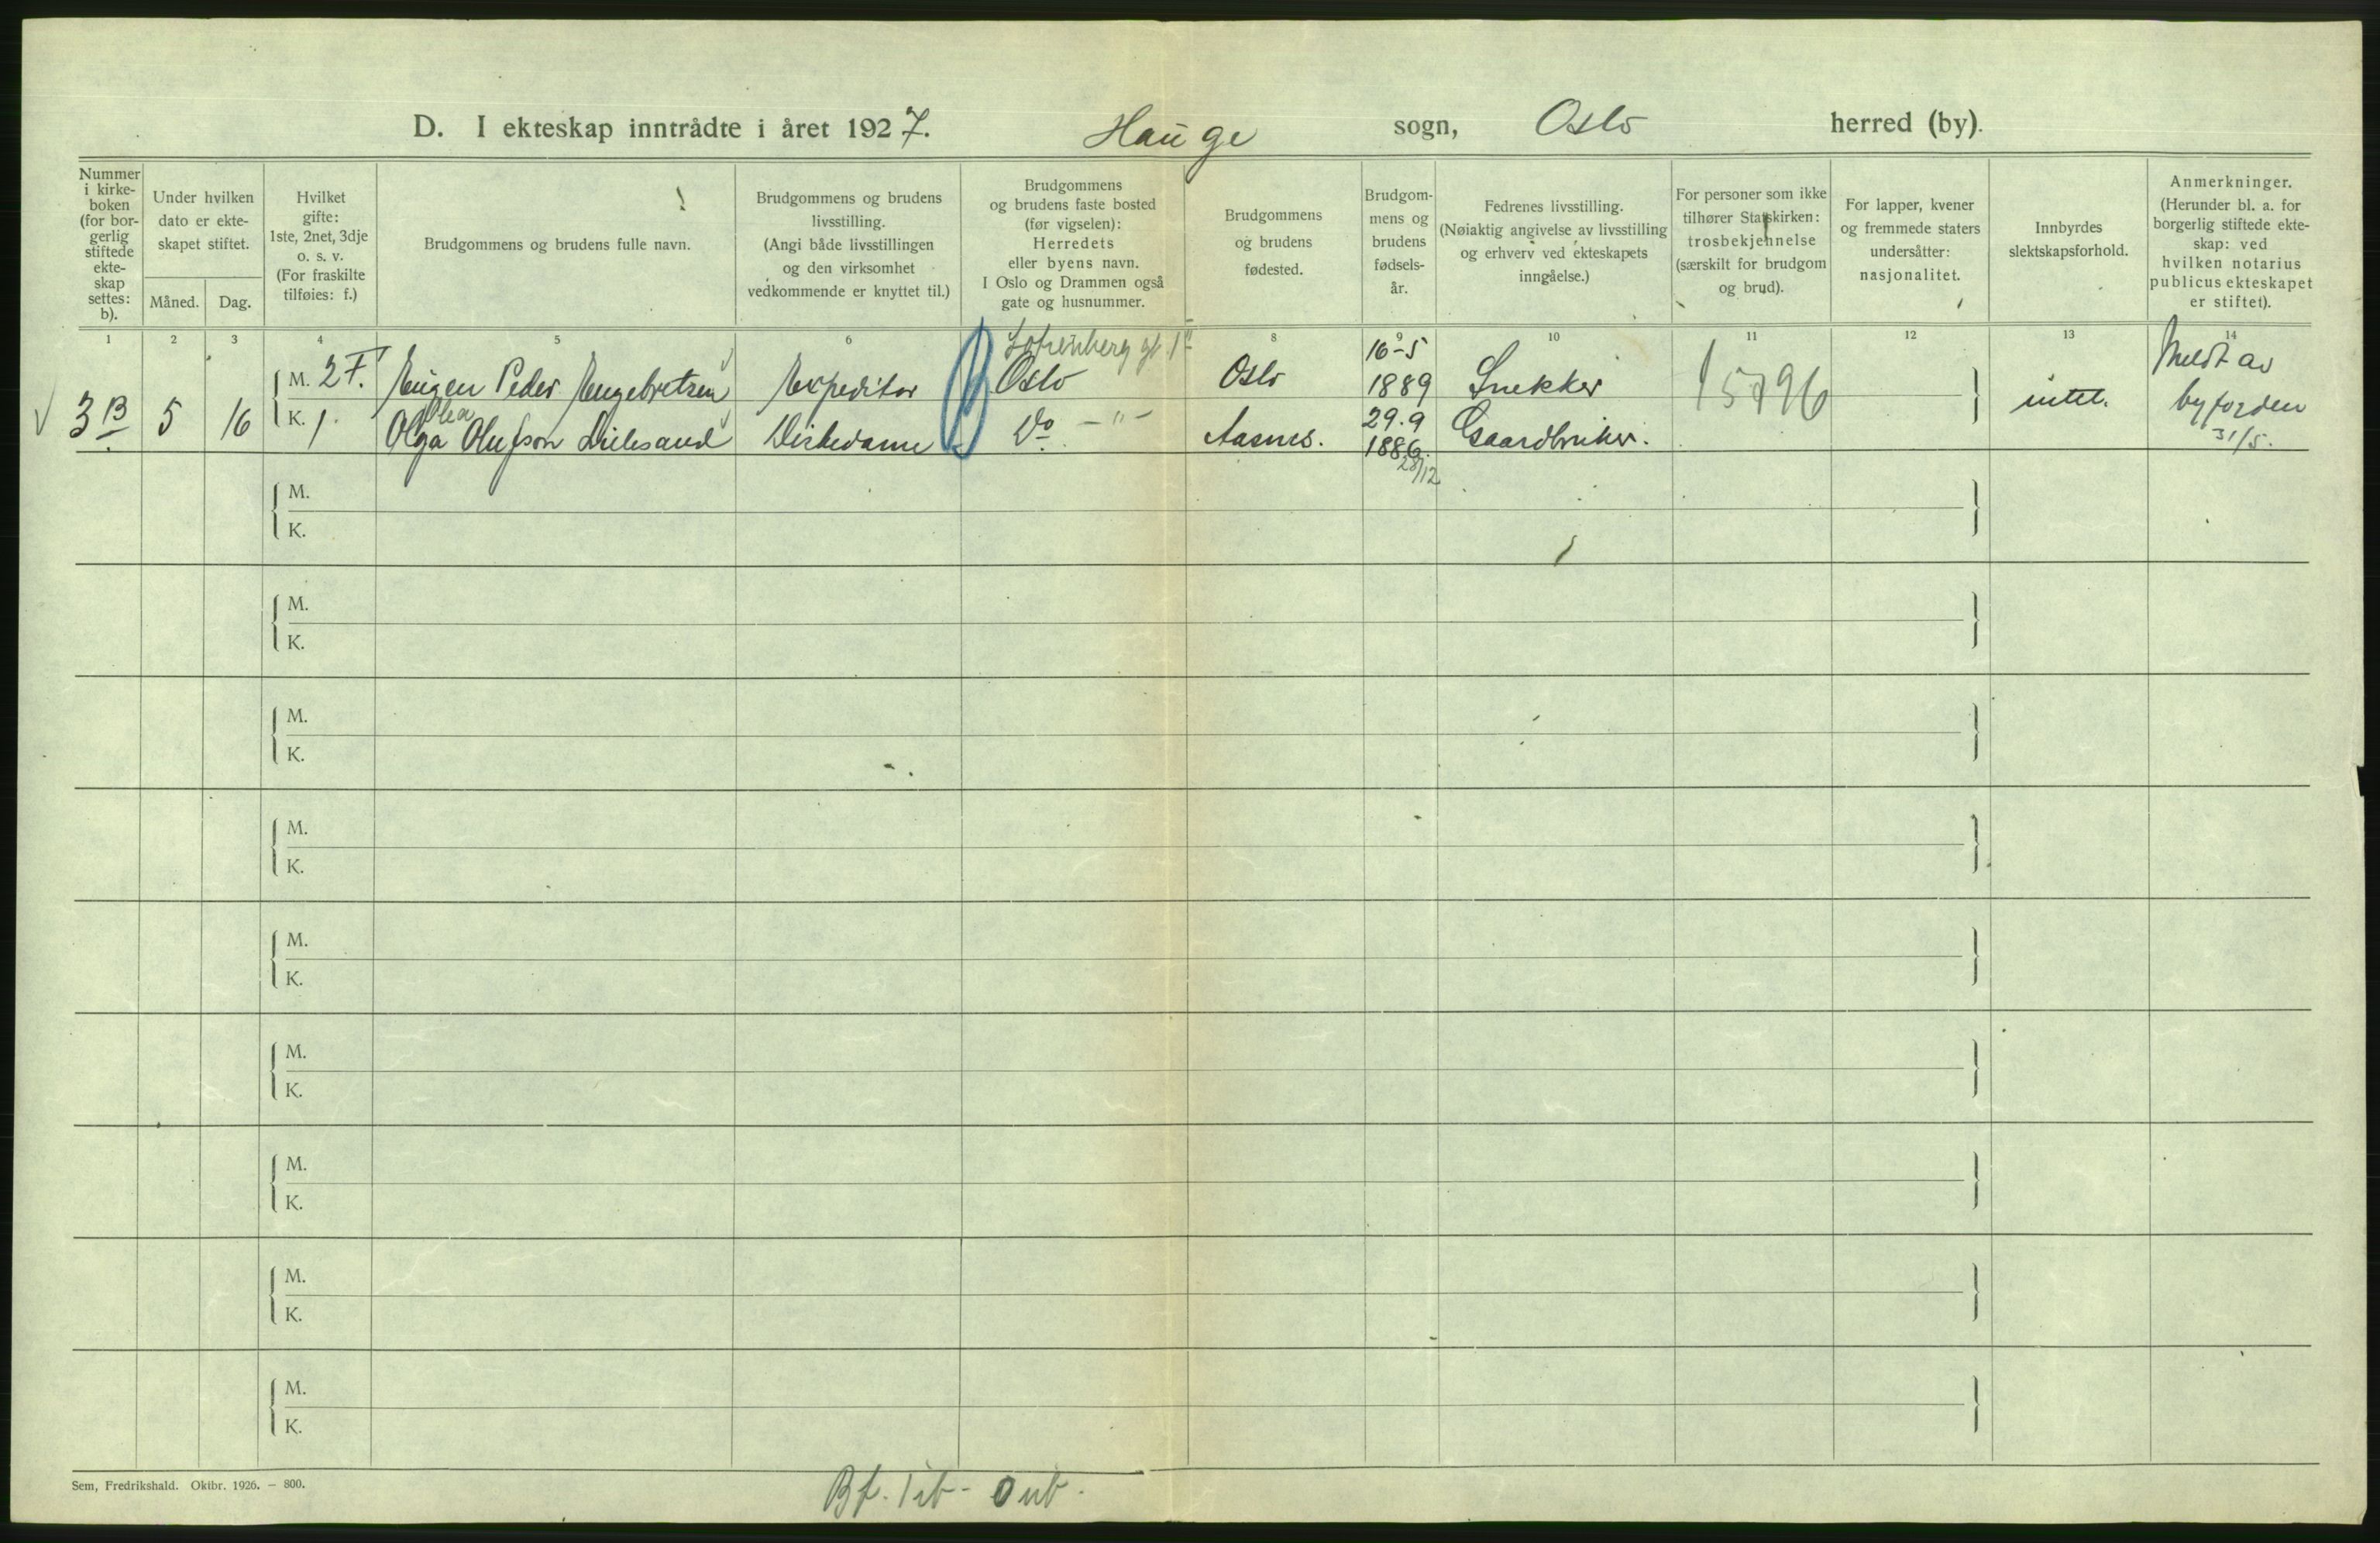 D. I ekteskap inntrådte i året 1927. Hauge sogn, Oslo herred (by).
Nummer
i kirke-
boken
(for bor-
gerlig
stiftede
ekte-
skap
settes:
b).
Under hvilken
dato er ekte-
skapet stiftet.
Måned.
Dag.
Hvilket
gifte:
1ste, 2net, 3dje
o. s. v.
(For fraskilte
tilføies: f.)
Brudgommens og brudens fulle navn.
Brudgommens og brudens
livsstilling.
(Angi både livsstillingen
og den virksomhet
vedkommende er knyttet til.)
Brudgommens
og brudens faste bosted
(før vigselen):
Herredets
eller byens navn.
I Oslo og Drammen også
gate og husnummer.
Brudgommens
og brudens
fødested.
Brudgom-
mens og
brudens
fødsels-
år.
Fedrenes livsstilling.
(Nøiaktig angivelse av livsstilling
og erhverv ved ekteskapets
inngåelse.)
For personer som ikke
tilhører Statskirken:
trosbekjennelse
(særskilt for brudgom
og brud).
For lapper, kvener
og fremmede staters
undersåtter:
nasjonalitet.
Innbyrdes
slektskapsforhold.
Anmerkninger.
(Herunder bl. a. for
borgerlig stiftede ekte-
skap: ved
hvilken notarius
publicus ekteskapet
er stiftet).
1 2 3 4 5 6 8 9 10 11 12 13 14
3 B 5 16
M. 2 F. Eugen Peder Engebretsen Expeditør Oslo Oslo 16-5 1889 Snekker 15796 intet. Meldt av
byfogden
31/5.
Olea
K. 1. Olga Olufson Do -"- Aasnes. 29.9 1886. Gaardbruker.
28/12
M.
K.
M.
K.
M.
K.
M.
K.
M.
K.
M.
K.
M.
K.
M.
K.
M.
K.
Sem, Fredrikshald. Oktbr. 1926. — 800.